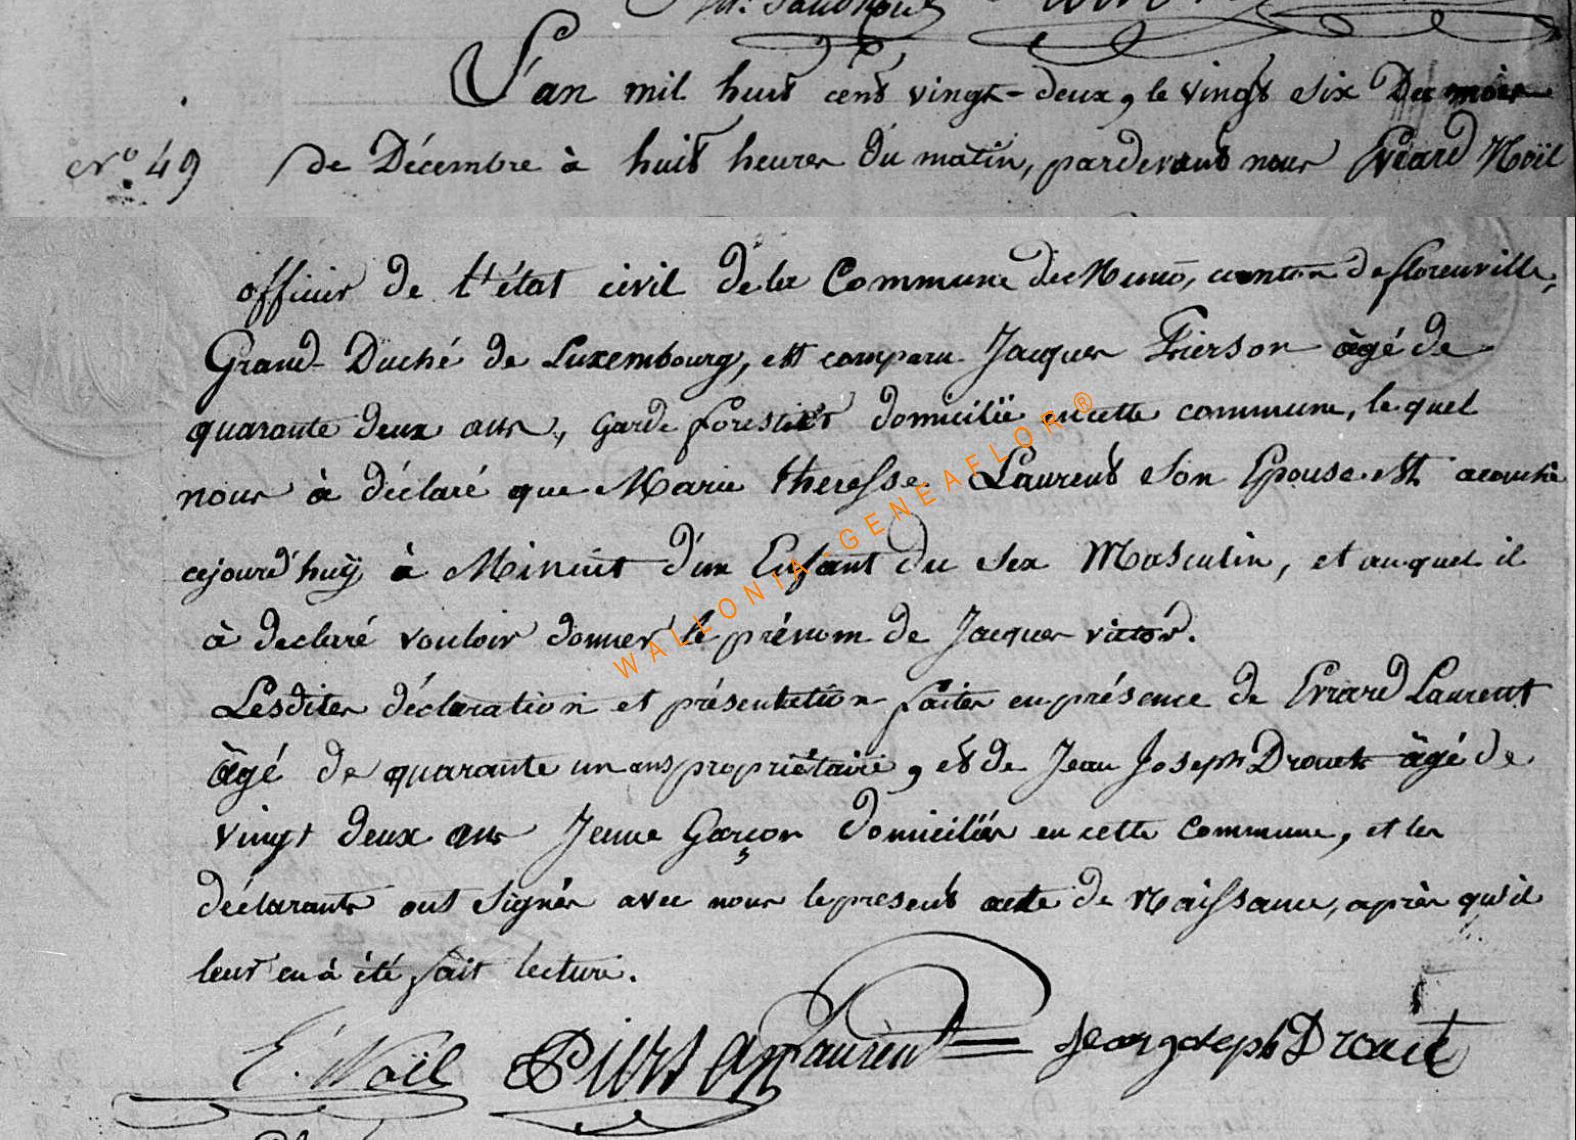 L'an mil huit cent vingt-deux, le vingt six Du mois
N° 49
de Décembre à huit heures du matin, pardevant nous Evrard Noël
officier de l'état civil de la Commune de Muno, canton de florenville,
Grand-Duché de Luxembourg, est comparu Jacques Pierson âgé de
quarante deux ans, garde forestier domicilié en cette commune, lequel
nous à déclaré que Marie theresse Laurent son Epouse est acouché
cejourd'huÿ à Minuit d'un Enfant du sex Masculin, et auquel il
à declaré vouloir donner le prénom de Jacques victor.
Lesdites déclaration et présentation faites en présence de Evrard Laurent
âgé de quarante un ans propriétaire, et de Jean Joseph Drouet âgé de
vingt deux ans Jeune Garçon domiciliés en cette commune, et les
déclarants ont signés avec nous le present acte de Naissance, après qu'il
leur en à été fait lecture.
E. Noël Pierson Laurent Jean joseph Drouet
WALLONIA-GENEAFLOR®